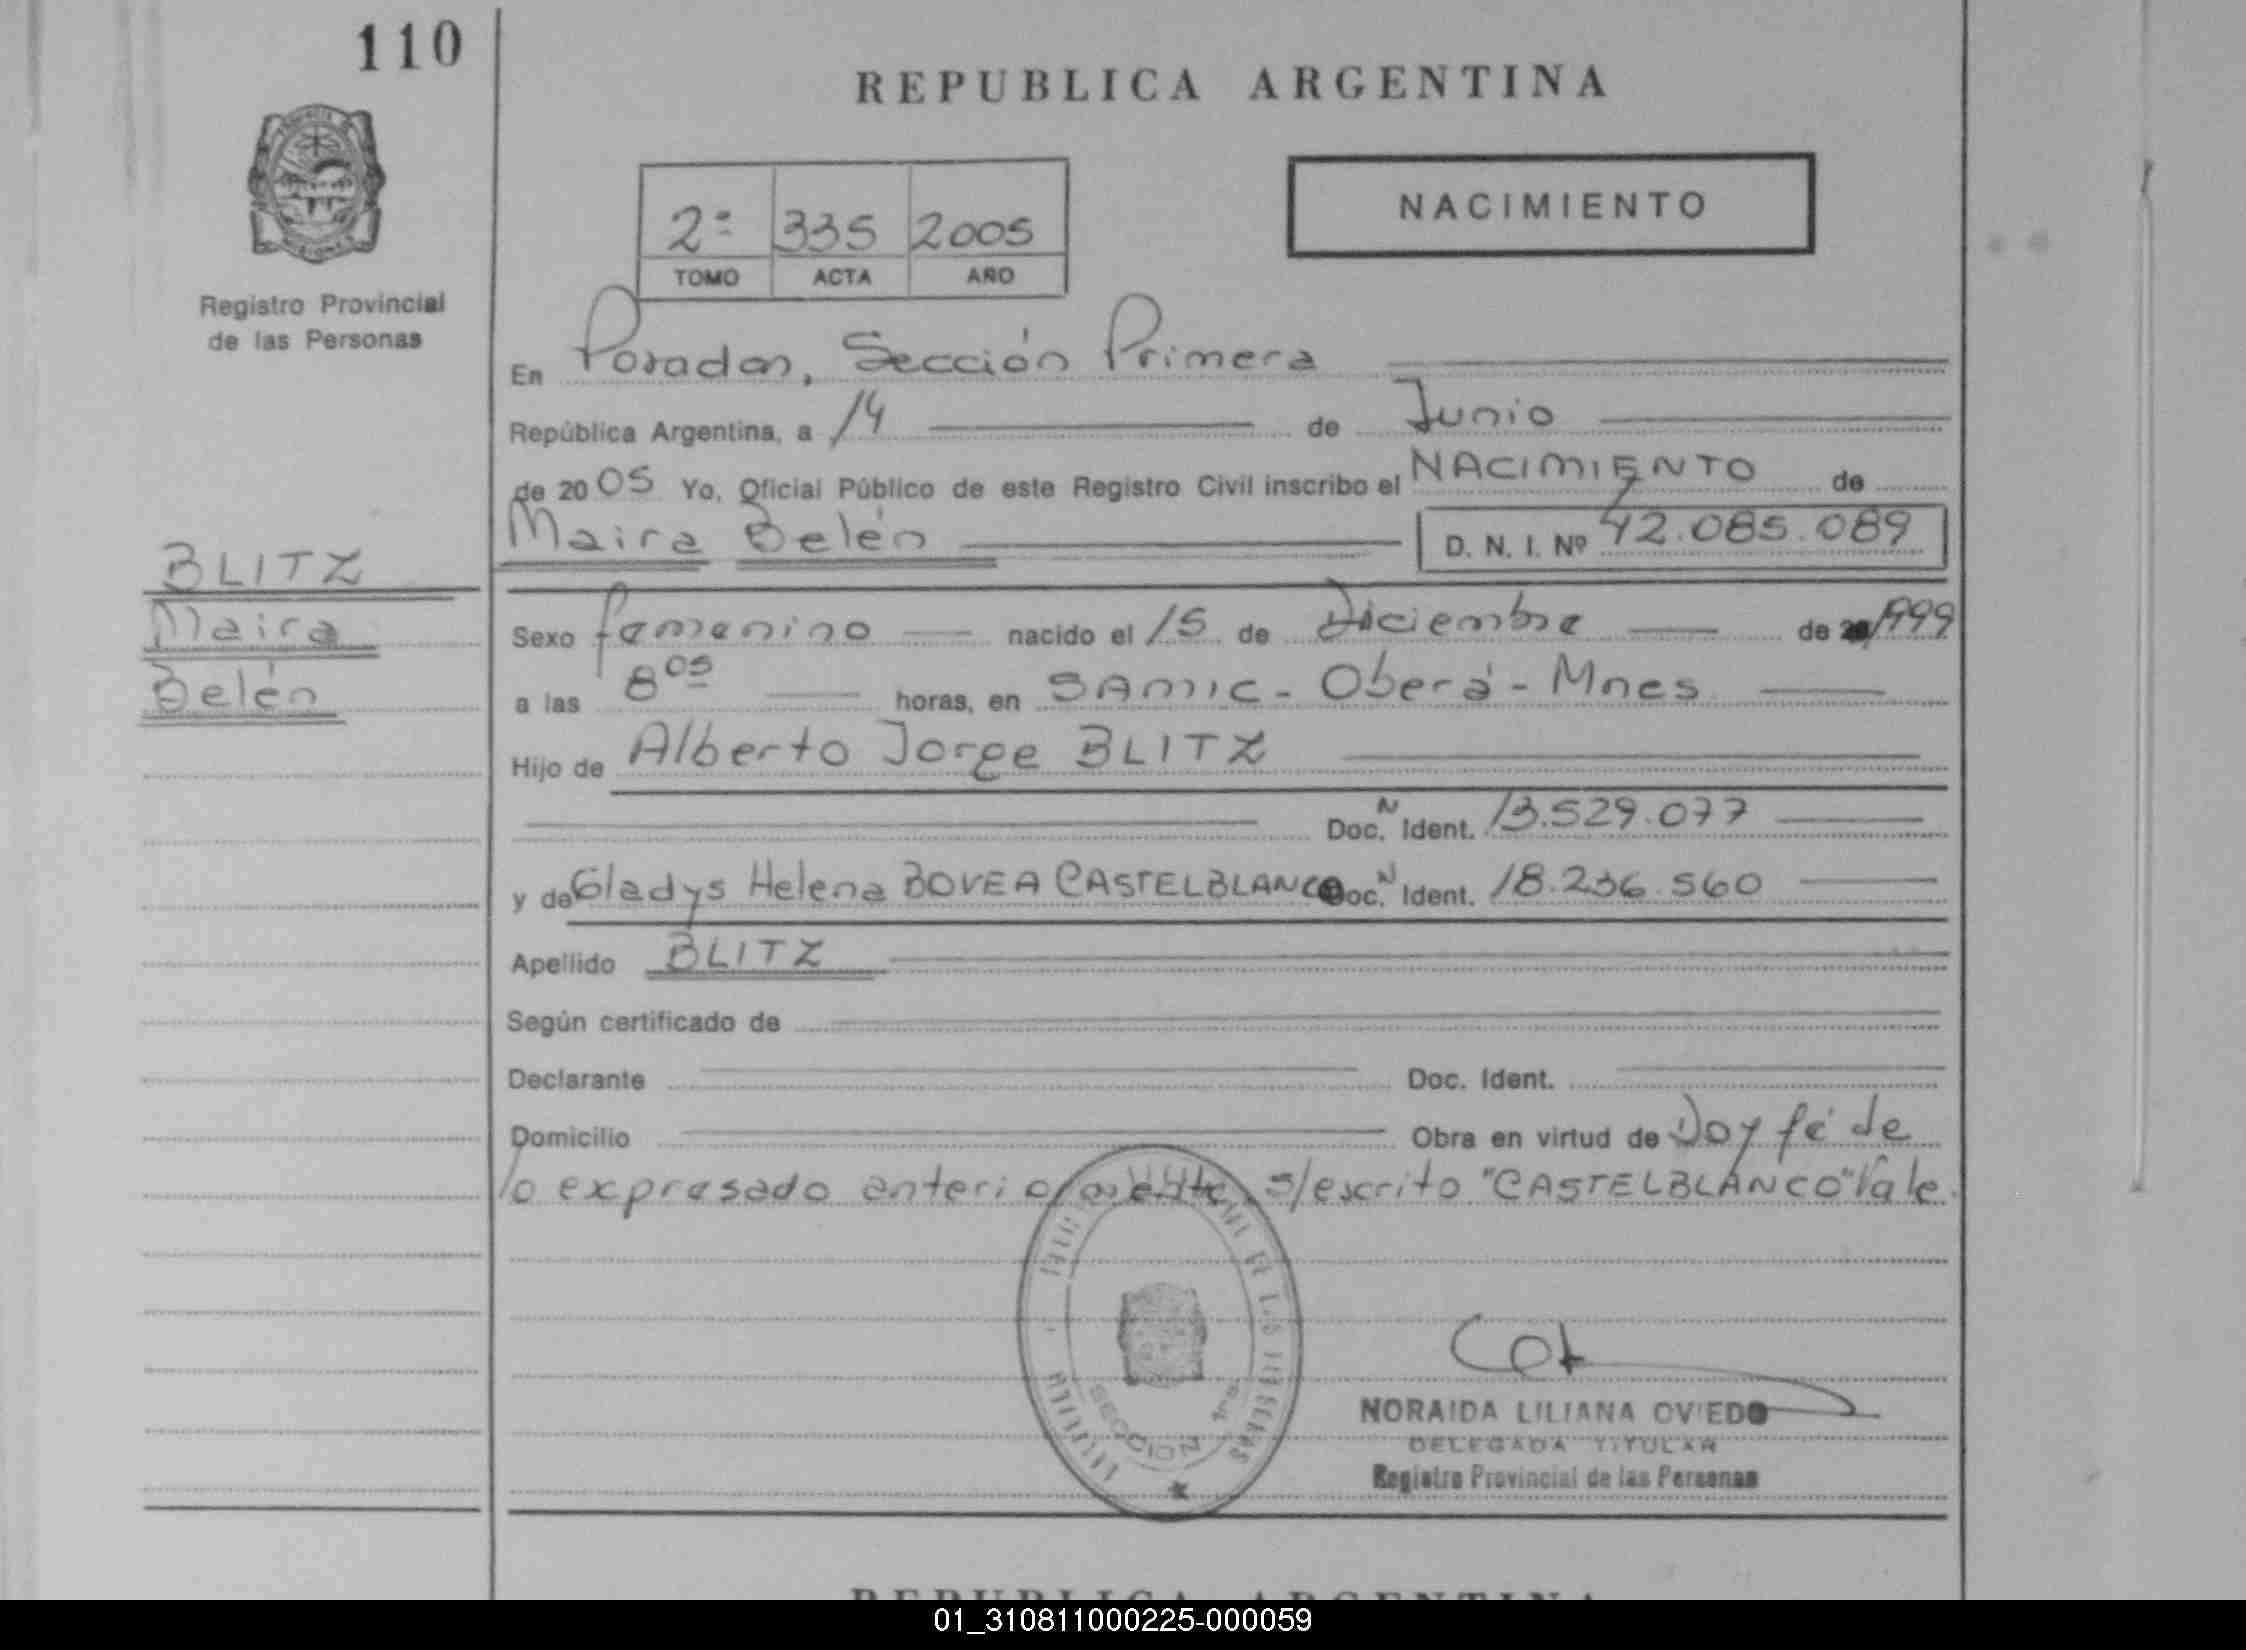 110
REPUBLICA ARGENTINA
2º 335 2005
TOMO ACTA AÑO
NACIMIENTO
Registro Provincial
de las Personas
En Posadas, Sección Primera
República Argentina, a 14 de Junio
de 2005 Yo, Oficial Público de este Registro Civil inscribo el NACIMIENTO de
Maira Belén D. N. I. Nº 42.085.089
BLITZ
Maira
Belén
Sexo femenino nacido el 15 de Diciembre de 1999
a las 8 05 horas, en SAMIC - Oberá - Mnes
Hijo de Alberto Jorge BLITZ
Doc. N Ident. 13.529.077
y de Gladys Helena BOVEA CASTELBLANCO Doc. N Ident. 18.236.560
Apellido BLITZ
Según certificado de
Declarante Doc. Ident.
Domicilio Obra en virtud de Doy fé de
lo expresado anteriormente. s/escrito "CASTELBLANCO" Vale.
DE LAS PERSONAS
SECCION 1ra
NORAIDA LILIANA OVIEDO
DELEGADA TITULAR
Registro Provincial de las Personas
REPUBLICA ARGENTINA
01_310811000225-000059